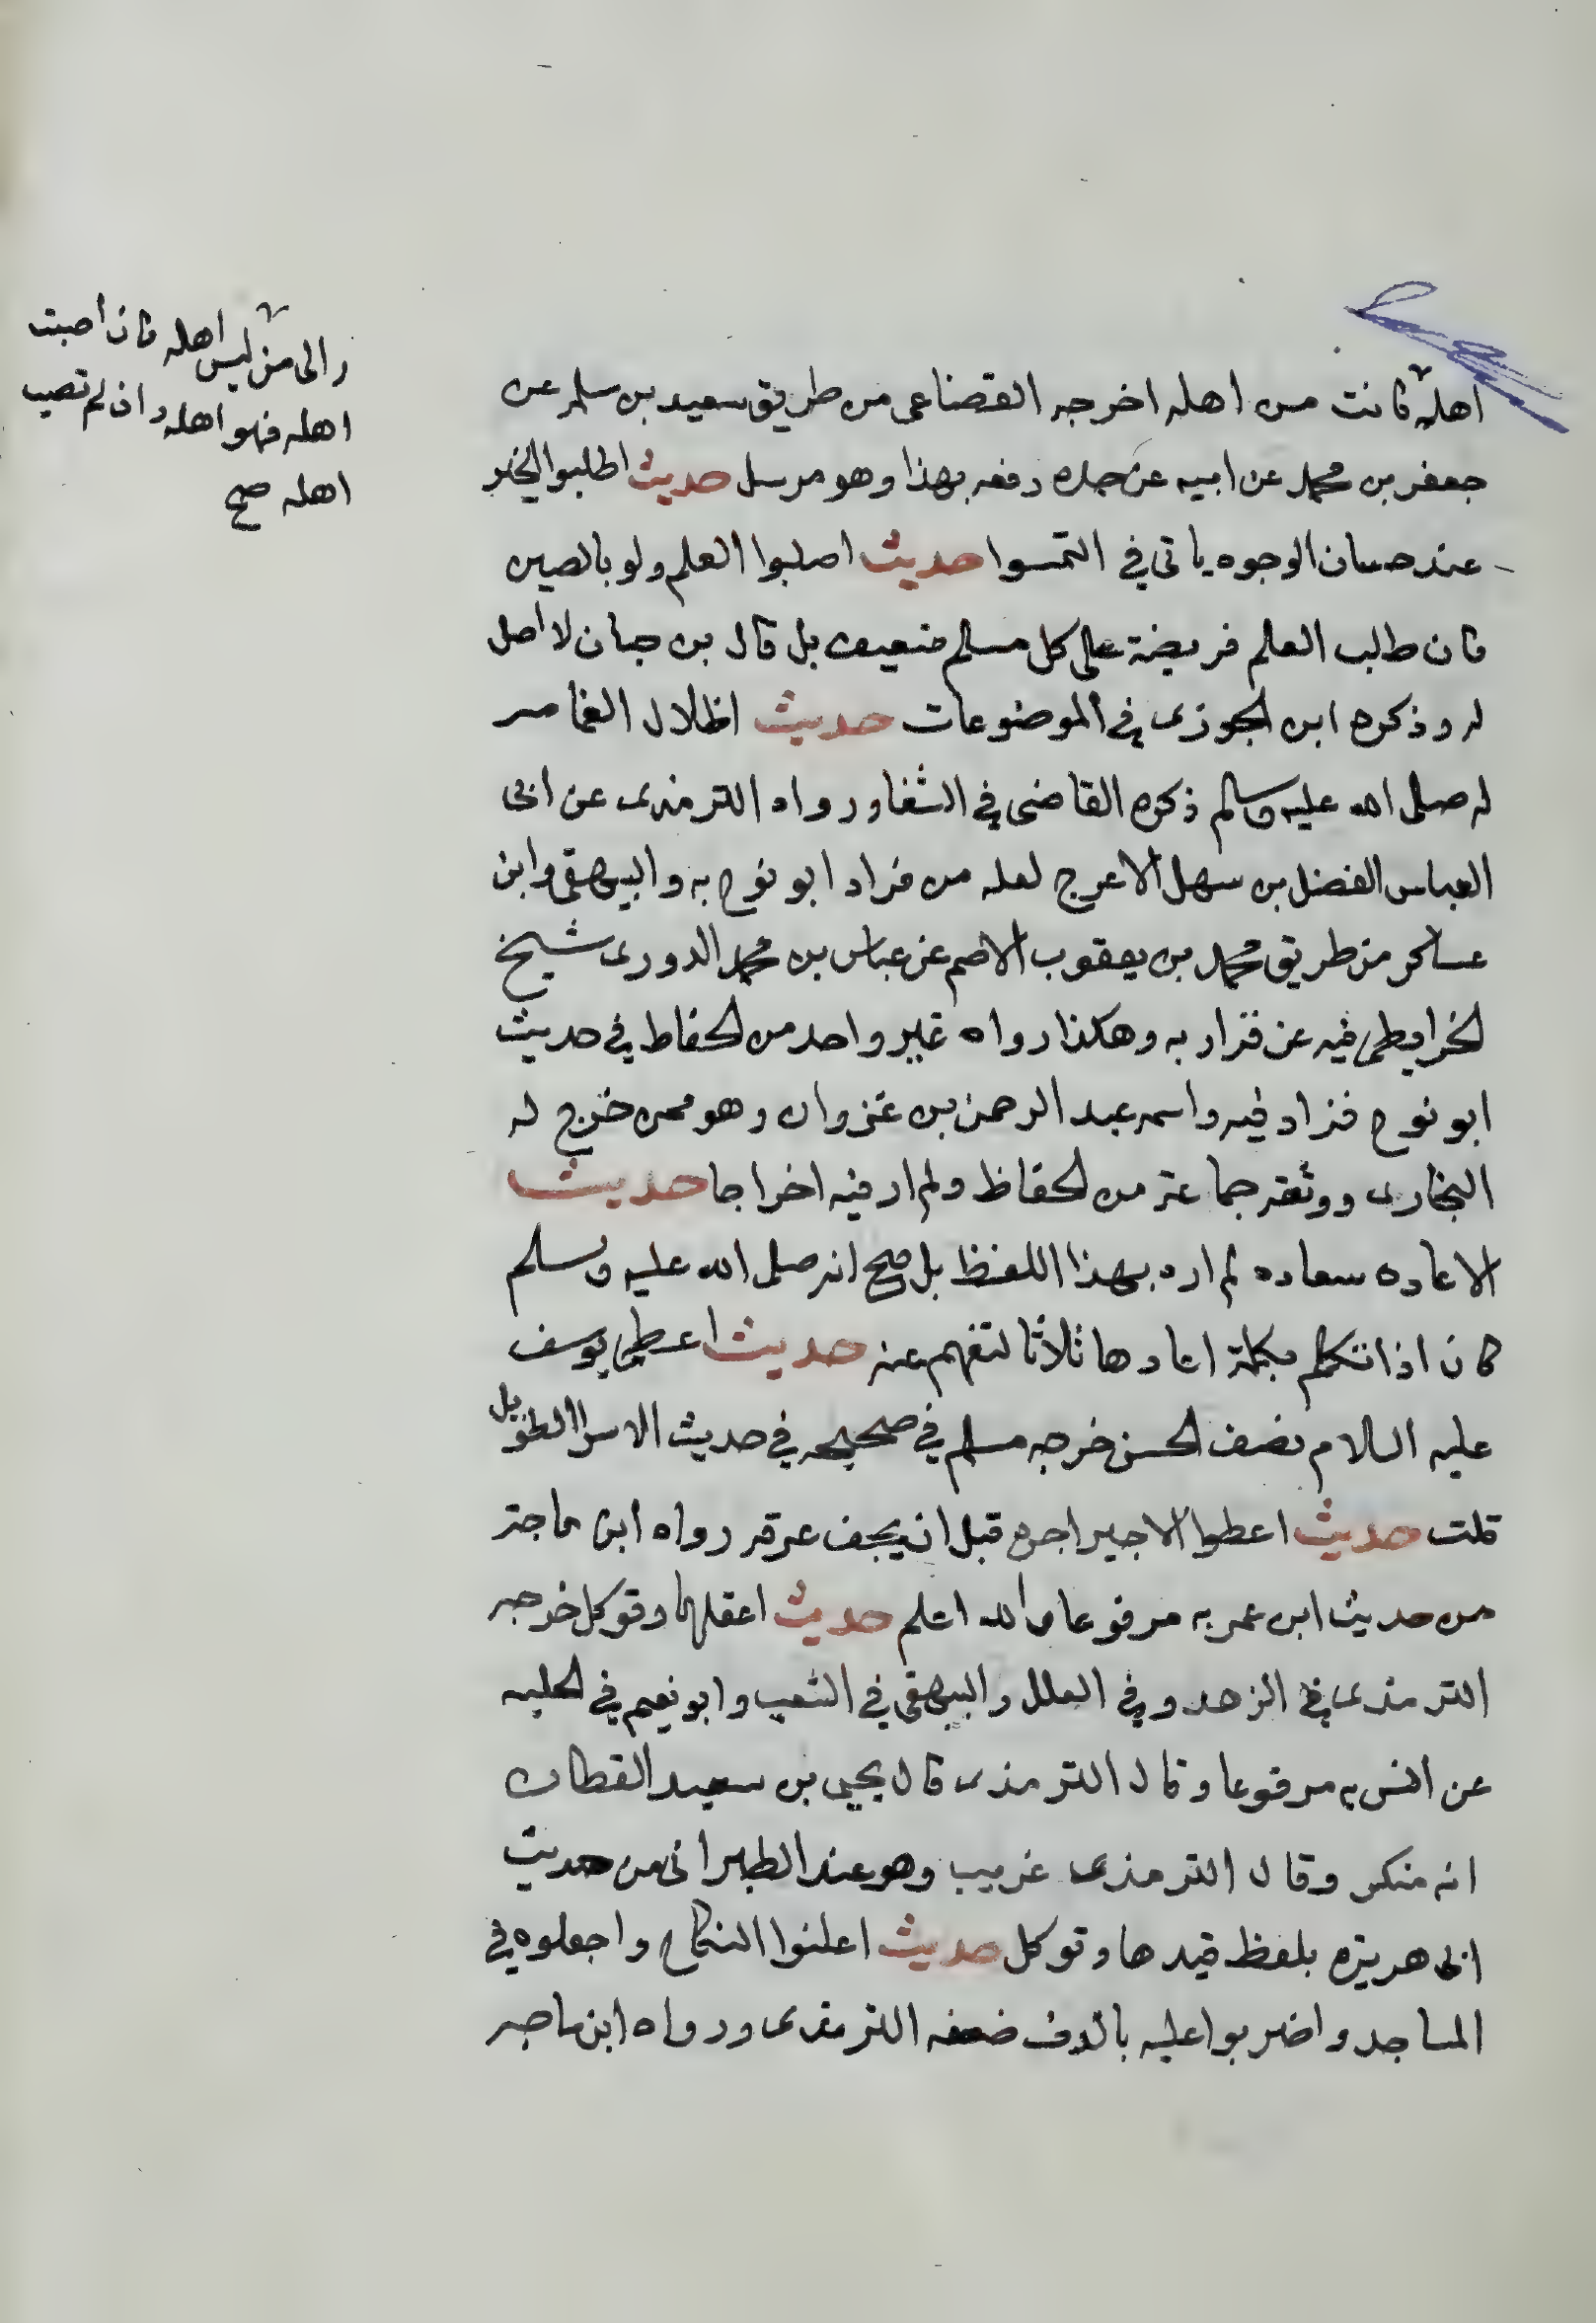 اهله فانت من اهله اخرجه القضاعى من طريق سعيد بن سلمه عن
جعفر بن محمد عن ابيه عن جده رفعه بهذا وهو مرسل حديث اطلبوا الخير
عند حسان الوجوه ياتى في التمسوا حديث اطلبوا العلم ولو بالصين
فان طلب العلم فريضة على كل مسلم ضعيف بل قال بن حبان لا اصل
له وذكره ابن الجوزى في الموضوعات حديث اظلال الغمامه
له صلى الله عليه وسلم ذكره القاضى في الشفا ورواه الترمذى عن ابى
العباس الفضل بن سهل الاعرج لعله من قراد ابو نوح به والبيهقى وابن
عساكر من طريق محمد بن يعقوب الاصم عن عباس بن محمد الدورى شيخ
الخرايطى فيه عن قراد به وهكذا رواه غير واحد من الحفاظ في حديث
ابو نوح قراد فيه واسمه عبد الرحمن بن غزوان وهو ممن خرج له
البخارى ووثقه جماعة من الحفاظ ولم ار فيه اخراجا حديث
الاعاده سعاده لم اره بهذا اللفظ بل صح انه صلى الله عليه وسلم
كان اذا تكلم بكلمة اعادها ثلاثا لتفهم عنه حديث اعطى يوسف
عليه السلام نصف الحسن خرجه مسلم في صحيحه في حديث الاسرا الطويل
قلت حديث اعطوا الاجير اجره قبل ان يجف عرقه رواه ابن ماجة
من حديث ابن عمر به مرفوعا والله اعلم حديث اعقلها وتوكل خرجه
الترمذى في الزهد وفي العلل والبيهقى في الشعب وابو نعيم في الحليه
عن انس به مرفوعا وقال الترمذى قال يحيى بن سعيد القطان
انه منكر وقال الترمذى غريب وهو عند الطبرانى من حديث
ابى هريرة بلفظ قيدها وتوكل حديث اعلنوا النكاح واجعلوه في
المساجد واضربوا عليه بالدف ضعفه الترمذى ورواه ابن ماجه
والى من ليس اهله فان اصبت
اهله فهو اهله وان لم تصيب
اهله صح